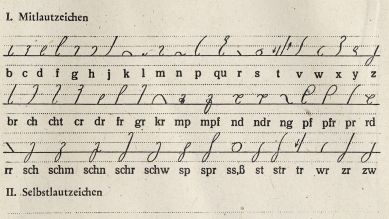 I. Mitlautzeichen
b c d f g h j k l m n p qu r s t v w x y z
br ch cht cr dr fr gr kr mp mpf nd ndr ng pf pfr pr rd
rr sch schm schn schr schw sp spr ss,ß st str tr wr zr zw
II. Selbstlautzeichen